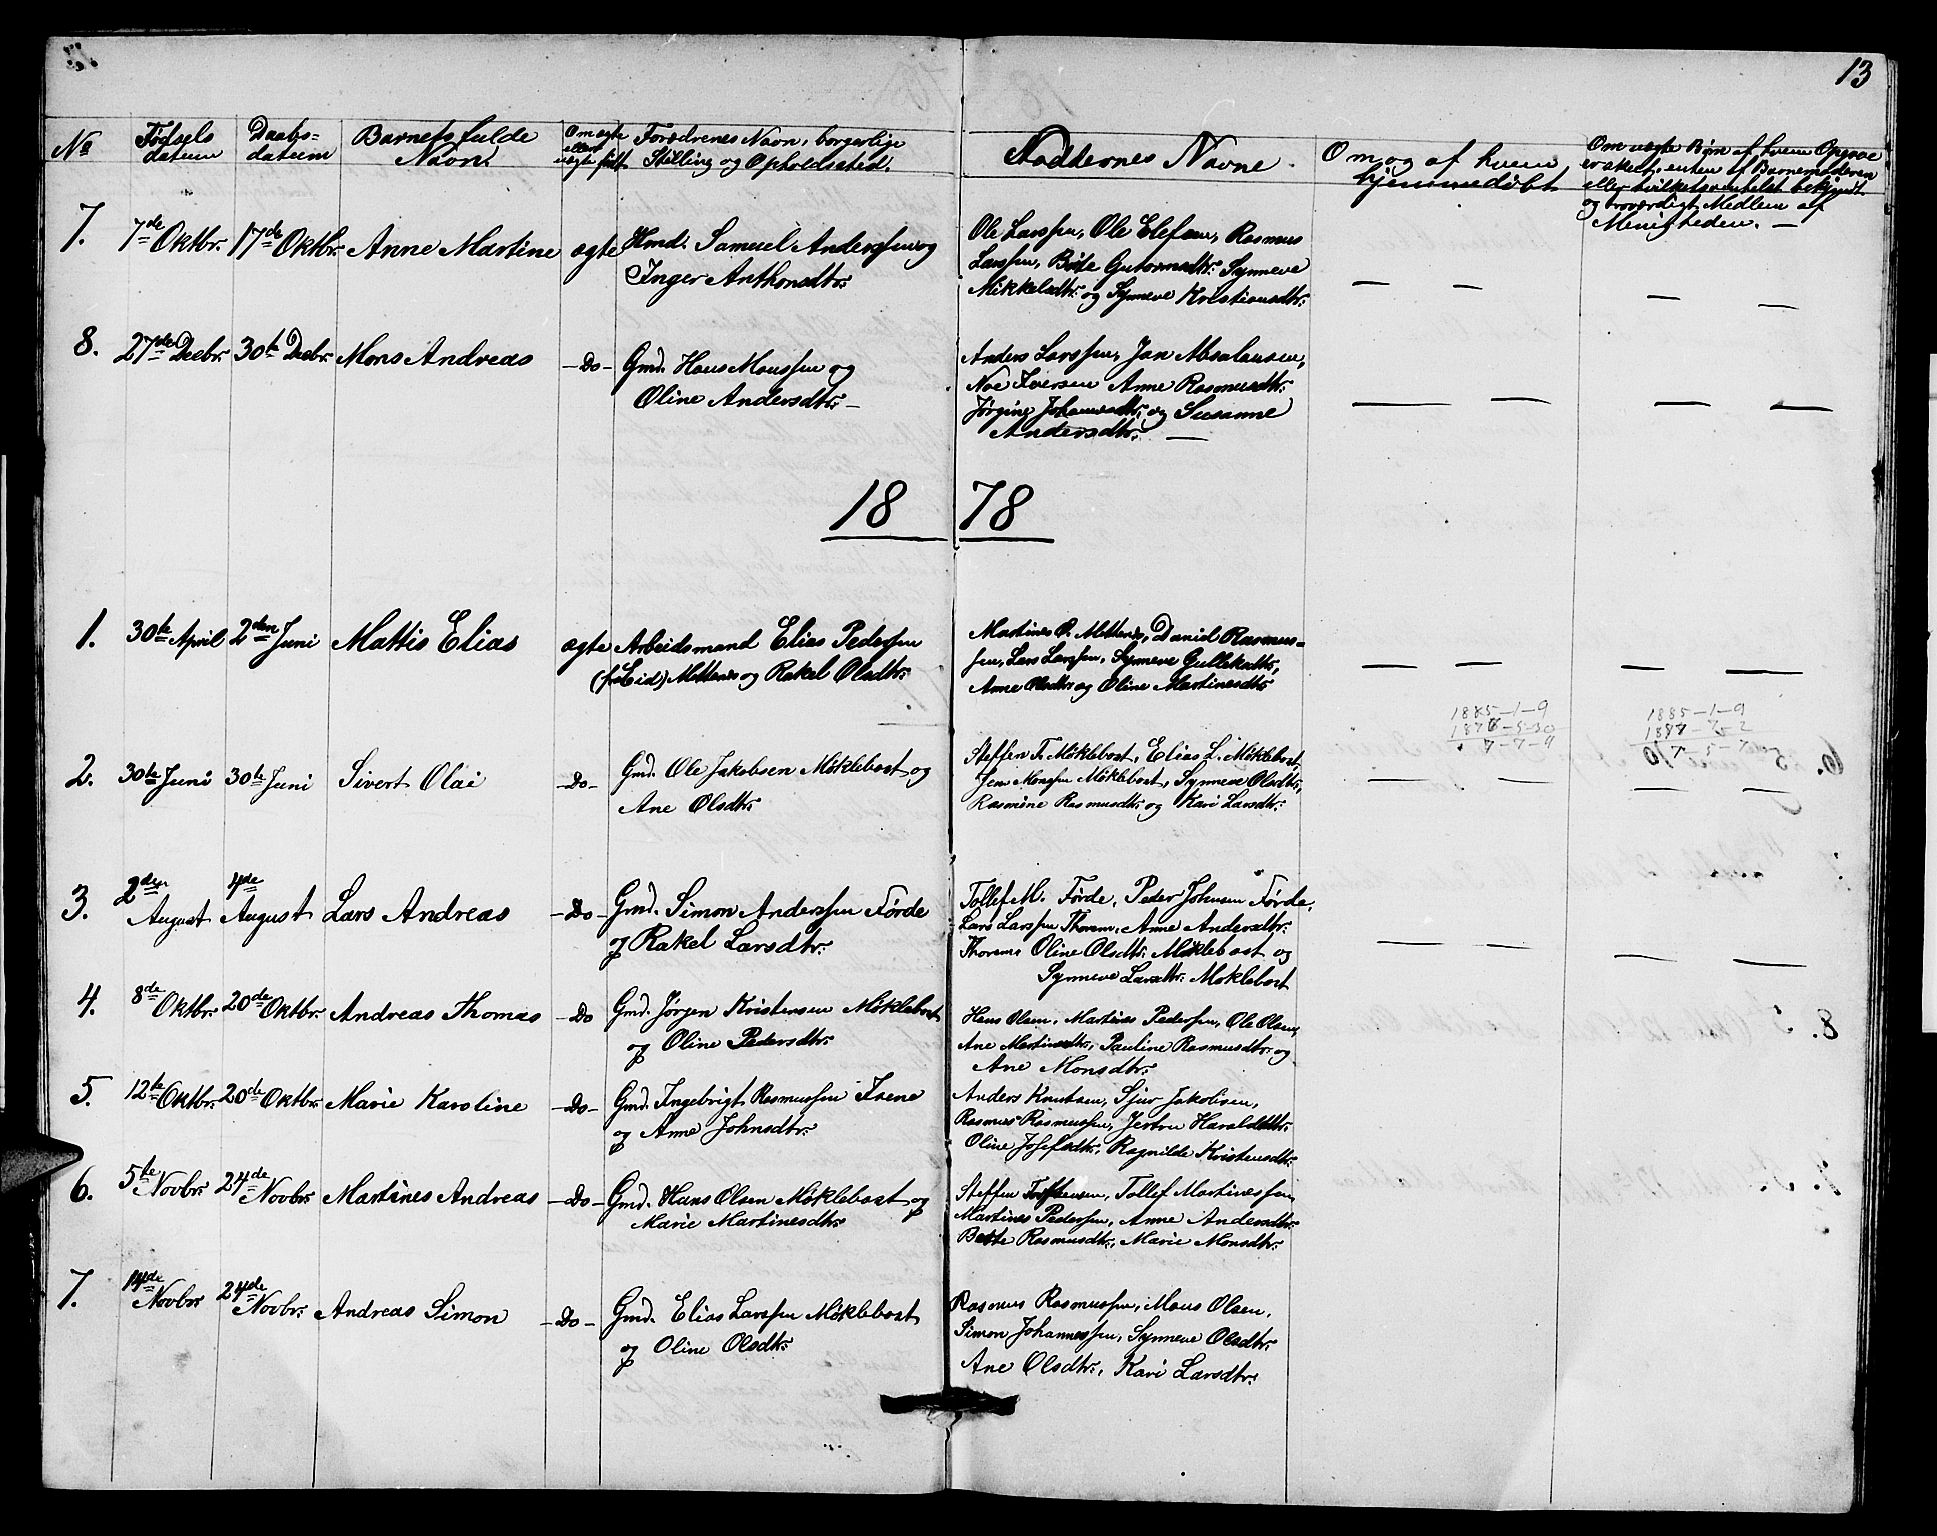 13
No
Fødsels datum
Daabs= datum
Barnets fulde Navn.
Om ægte eller uægte født
Forældrenes Navn, borgerlige Stilling og Opholdssted.
Faddernes Navne.
Om og af hvem hjemmedøbt
Om uægte Børn af hvem Opgave er skeet, enten af Barnemoderen eller hvilketsomhelst bekjendt og troværdigt Medlem af Menigheden. —
7. 7de Oktbr. 17de Oktbr. Anne Martine ægte Hmd. Samuel Anderssen og
Inger Anthonsdtr.
Ole Larssen, Ole Elefsen, Rasmus
Larssen, Gutormsdtr. Synneve
Mikkelsdtr. og Synneve Kristiansdtr.
— — — —
8. 27de Decbr. 30te Decbr. Mons Andreas —Do— Gmd. Hans Monssen og
Oline Andersdtr. —
Anders Larssen, Jan Absalonsen,
Noe Iversen Anne Rasmusdtr.
Jørgine Johannesdtr. og Susanne
Andersdtr. —
— — — —
18 78
1. 30te April 2den Juni Mattis Elias ægte Arbeidsmand Elias Pederssen
(fra Eid) Mettenes og Rakel Olsdtr.
Martines P. Mettenes, Daniel Rasmus=
sen, Lars Larssen, Synneve Gulleksdtr,
Anne Olsdtr og Oline Martinesdtr
— — — —
1885-1-9
1878-5-30
7-7-9
1885-1-9
2. 30te Juni 30te Juni Sivert Olai —Do— Gmd. Ole Jakobsen Møklebost og
Ane Olsdtr.
Steffen T. Møklebost, Elias L. Møklebost
Jens Monssen Møklebost, Synneve Olsdtr,
Rasmine Rasmusdtr. og Kari Larsdtr.
— — — —
3. 2den August 4de August Lars Andreas —Do— Gmd. Simon Anderssen Førde
og Rakel Larsdtr.
Tollef M. Førde, Peder Johnsen Førde,
Lars Larssen Thorem, Anne Andersdtr.
Thorems Oline Olsdtr. Møklebost og
Synneve Larsdtr. Møklebost
— — — —
4. 8de Oktbr. 20de Oktbr. Andreas Thomas —Do Gmd. Jørgen Kristensen Møklebost
og Oline Pedersdtr.
Hans Olsen, Martines Pederssen, Ole Olsen,
Ane Martinesdtr, Pauline Rasmusdtr. og
Ane Monsdtr.
5. 12te Oktbr. 20de Oktbr. Marie Karoline —Do— Gmd. Ingebrigt Rasmussen Ivene
og Anne Johnsdtr.
Anders Knutsen, Sjur Jakobsen,
Rasmus Rasmussen, Jertru Haraldsdtr.
Oline Josefsdtr, Ragnilde Kristensdtr.
6. 5te Novbr. 24de Novbr. Martines Andreas —Do— Gmd. Hans Olsen Møklebost og
Marie Martinesdtr.
Steffen Torstensen, Tollef Martinessen,
Martines Pederssen, Anne Andersdtr.
Berte Rasmusdtr, Marie Monsdtr.
7. 14de Novbr 24de Novbr. Andreas Simon —Do— Gmd. Elias Larssen Møklebost
og Oline Olsdtr.
Rasmus Rasmussen, Mons Olsen,
Simon Johannessen, Synneve Olsdtr.
Ane Olsdtr., Kari Larsdtr.